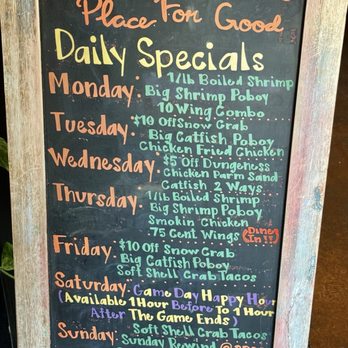 Place For Good
Daily Specials
Monday: 1/lb Boiled Shrimp
Big Shrimp Poboy
10 Wing Combo
Tuesday: $10 Off Snow Crab
Big Catfish Poboy
Chicken Fried Chicken
Wednesday: $5 Off Dungeness
Chicken Parm Sand
Catfish 2 Ways
Thursday: 1/lb Boiled Shrimp
Big Shrimp Poboy
Smokin Chicken
75 Cent Wings (Dine In!!)
Friday: $10 Off Snow Crab
Big Catfish Poboy
Soft Shell Crab Tacos
Saturday: Game Day Happy Hour
(Available 1 Hour Before To 1 Hour
After The Game Ends)
Sunday: Soft Shell Crab Tacos
Sunday Rewind @